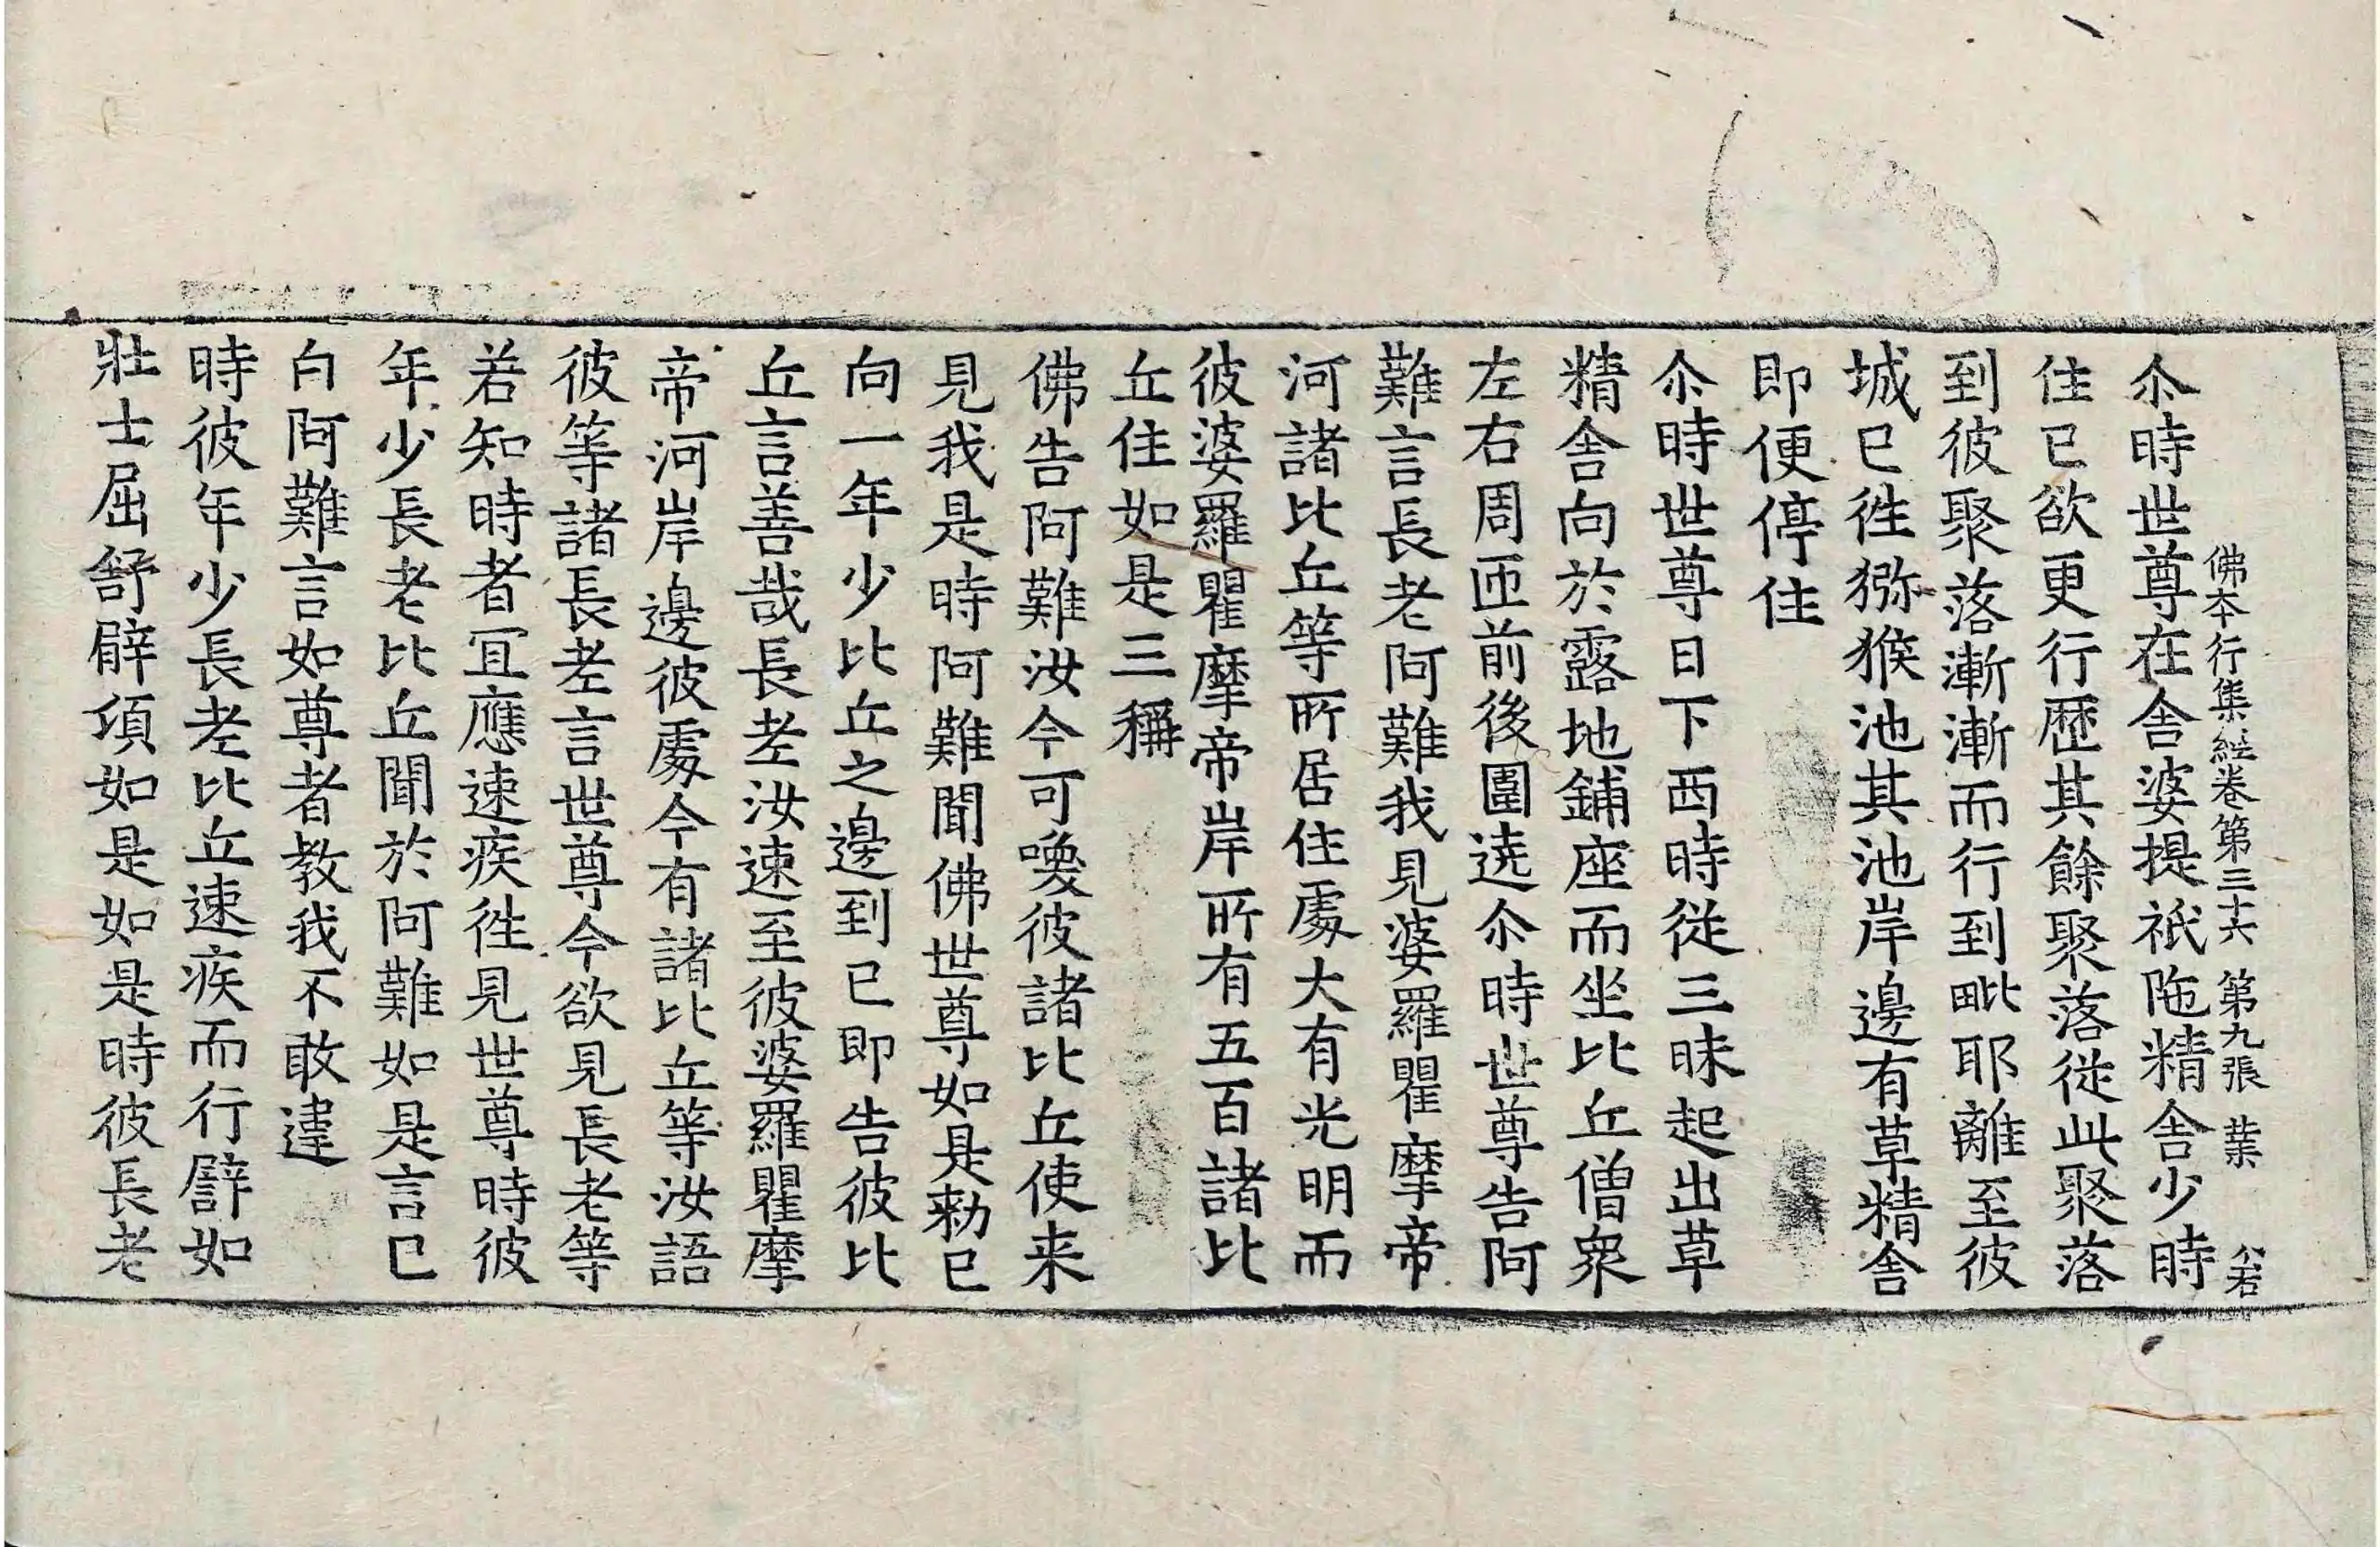 佛本行集経卷第三十六 第九張 業 公若
尒時世尊在舎婆提祇陁精舎少時
住已欲更行歷其餘聚落從此聚落
到彼聚落漸漸而行到毗耶離至彼
城已徃猕猴池其池岸邊有草精舎
即便停住
尒時世尊日下西時從三昧起出草
精舎向於露地鋪座而坐比丘僧衆
左右周匝前後圍遶尒時世尊告阿
難言長老阿難我見婆羅瞿摩帝
河諸比丘等所居住處大有光明而
彼婆羅瞿摩帝岸所有五百諸比
丘住如是三稱
佛告阿難汝今可喚彼諸比丘使来
見我是時阿難聞佛世尊如是勑已
向一年少比丘之邊到已即告彼比
丘言善哉長老汝速至彼婆羅瞿摩
帝河岸邊彼處今有諸比丘等汝語
彼等諸長老言世尊今欲見長老等
若知時者冝應速疾徃見世尊時彼
年少長老比丘聞於阿難如是言已
白阿難言如尊者教我不敢違
時彼年少長老比丘速疾而行譬如
壯士屈舒臂項如是如是時彼長老